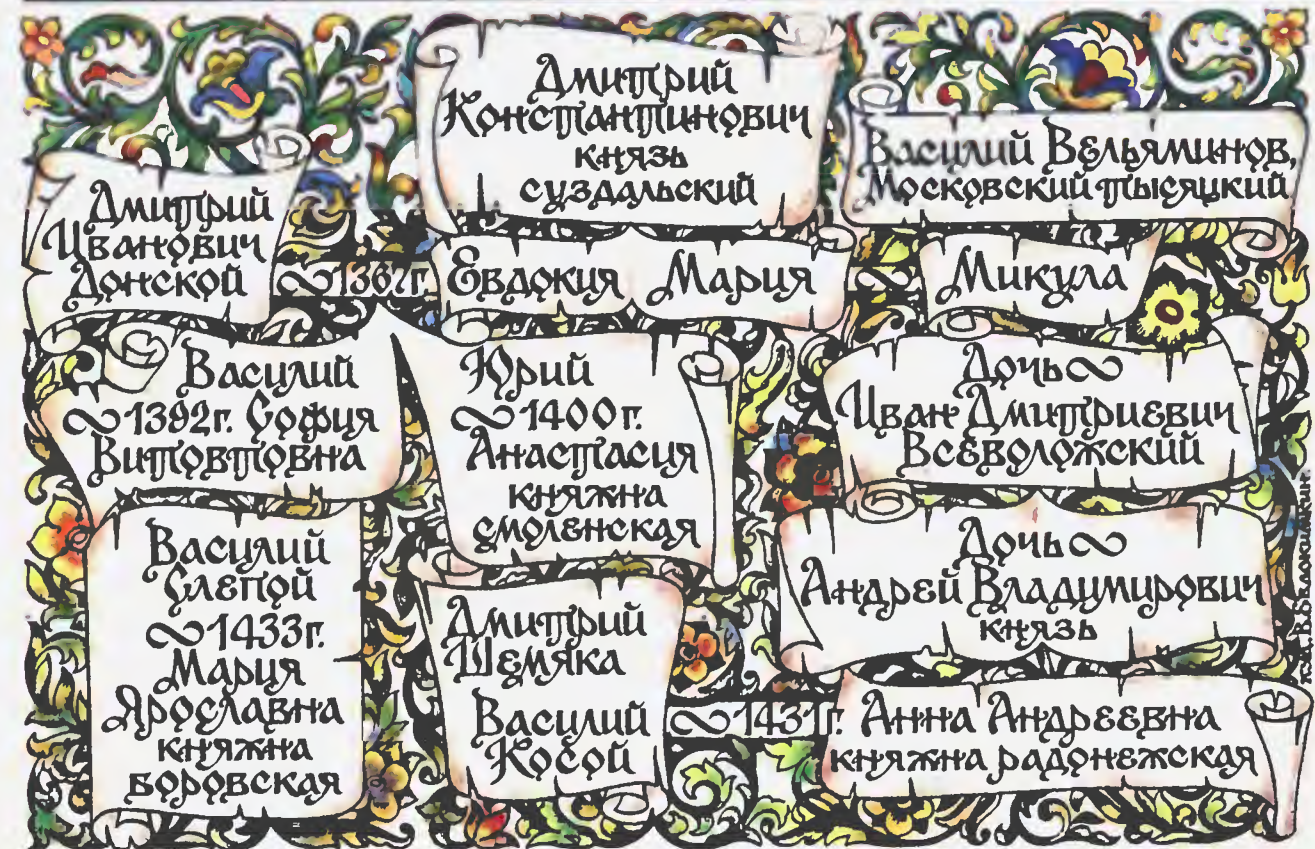 Дмитрий
Константинович
князь
суздальский
Василий Вельяминов,
Московский тысяцкий
Дмитрий
Иванович
Донской
∞1367г.
Евдокия
Мария
∞
Микула
Василий
∞1392г. София
Витовтовна
Юрий
∞1400г.
Анастасия
княжна
смоленская
Дочь∞
Иван Дмитриевич
Всеволожский
Василий
Слепой
∞1433г.
Мария
Ярославна
княжна
боровская
Дмитрий
Шемяка
Василий
Косой
∞1431г.
Дочь∞
Андрей Владимирович
князь
Анна Андреевна
княжна радонежская